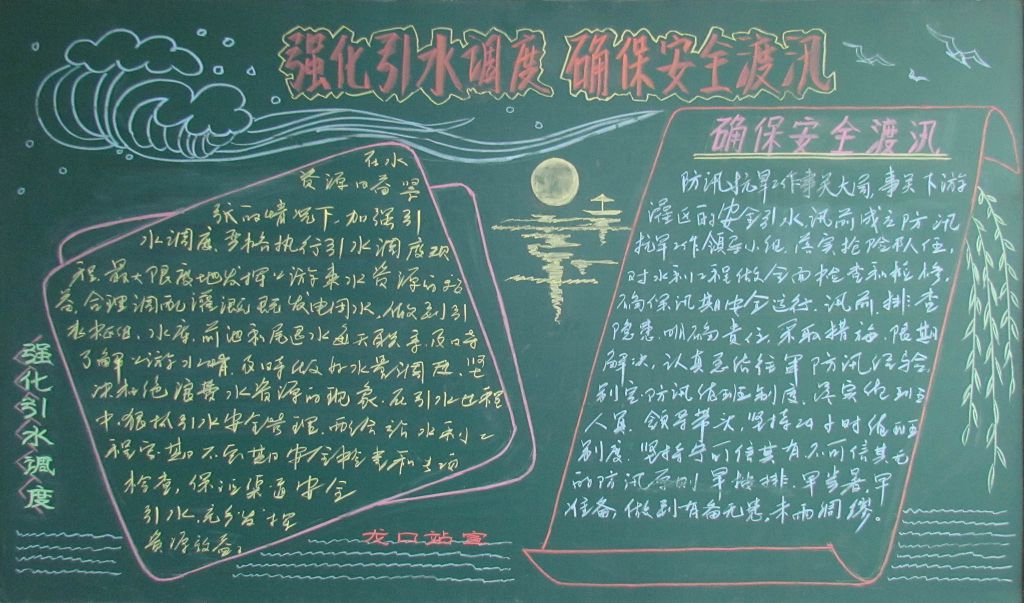 强化引水调度 确保安全渡汛
强化引水调度
在水
资源日益紧
张的情况下,加强引
水调度,严格执行引水调度规
程,最大限度地发挥上游来水资源的效
益,合理调配灌溉
了解上游水情,及时做好水量调度,坚
决杜绝浪费水资源的现象,在引水过程
中,狠抓引水安全管理,
程定期不定期安全检查和专项
检查,保证渠道安全
引水,充分发挥
资源效益。
龙口站宣
确保安全渡汛
防汛抗旱工作事关大局,事关下游
灌区的安全引水,汛前成立防汛
抗旱工作领导小组,落实抢险队伍,
对水利工程做全面检查和检修,
确保汛期安全运行,汛前,排查
隐患,明确责任,采取措施,限期
解决,认真总结往年防汛经验,
制定防汛值班制度,落实值班
人员,领导带头,坚持24小时值班
制度,坚持宁可信其有不可信其无
的防汛原则,早安排,早部署,早
准备,做到有备无患,未雨绸缪。